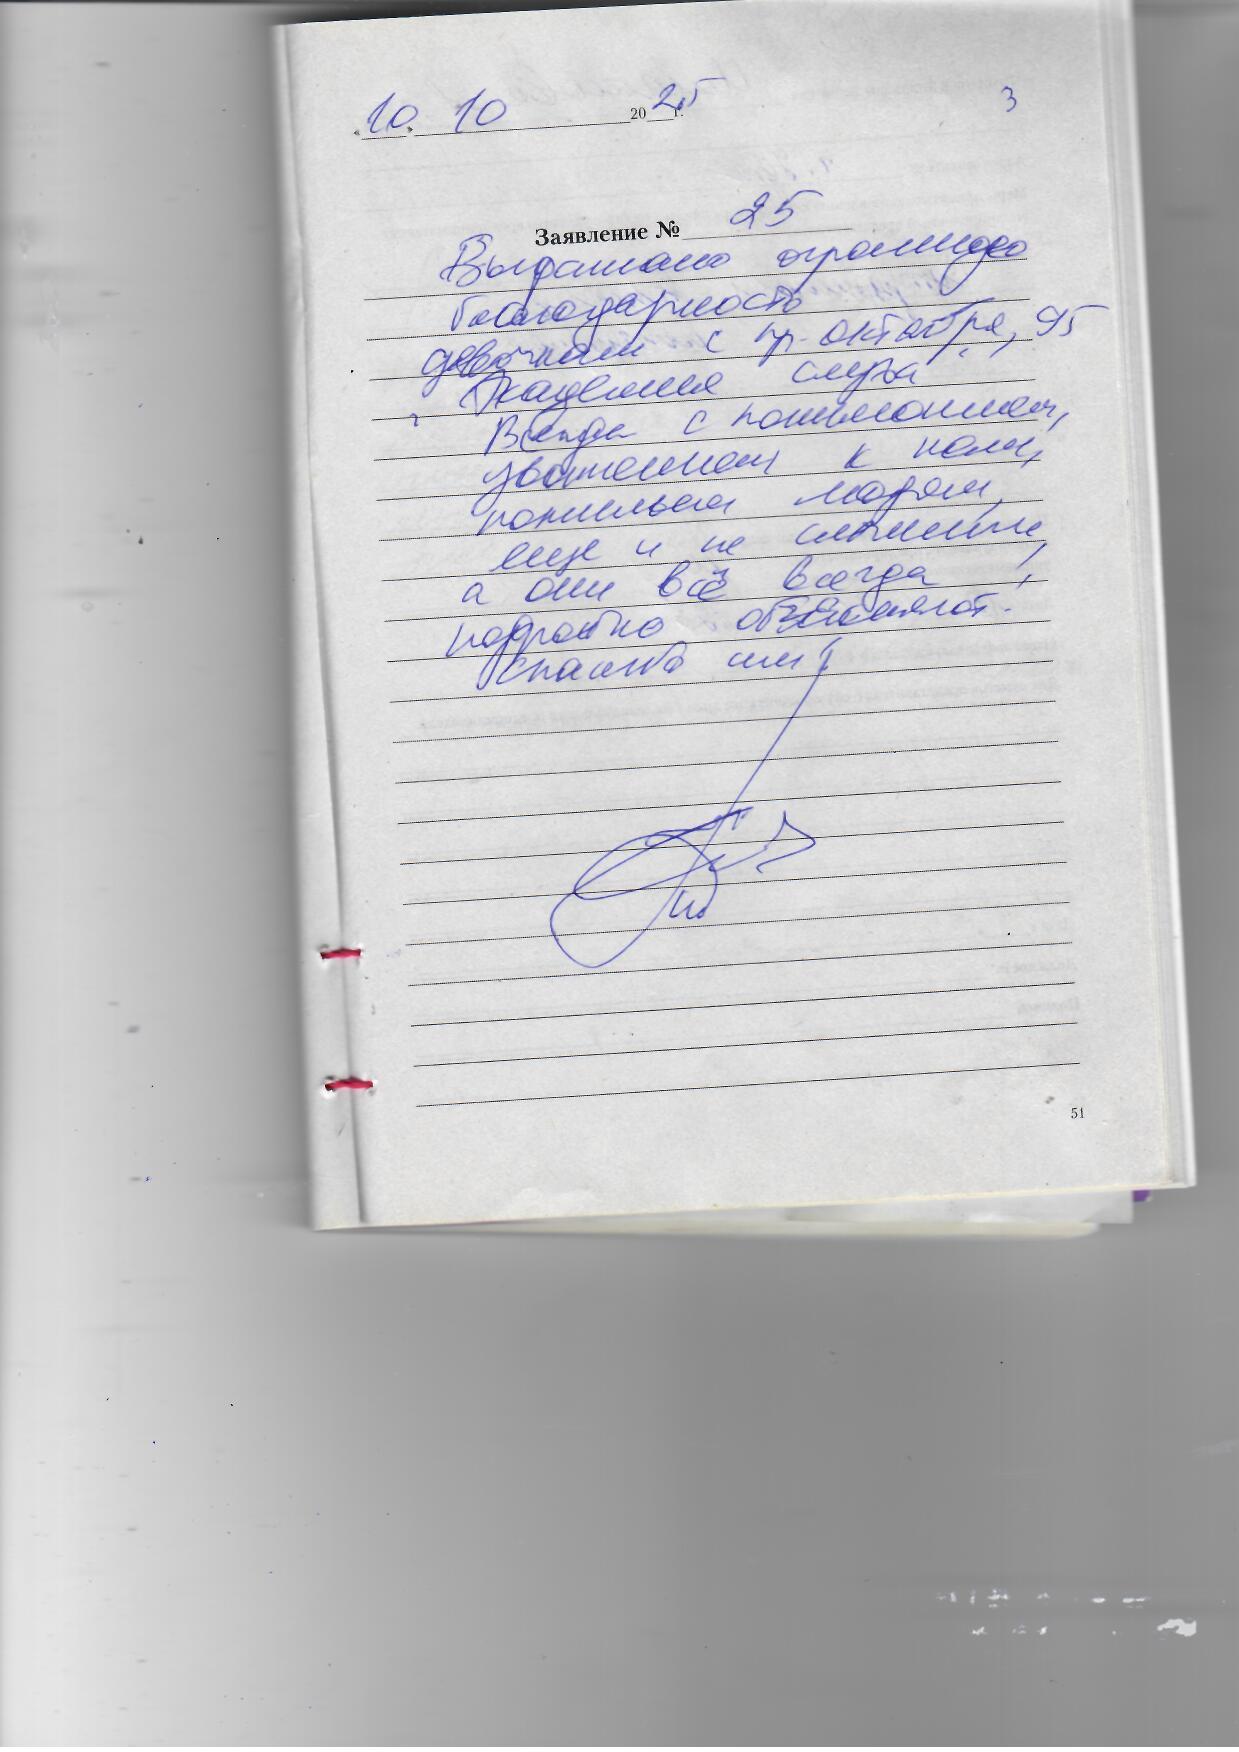 «10» 10 2025 г. 3
Заявление № 25
Выражаю огромную
благодарность
девочкам с пр. октября, 95
"Академия слуха"
Всегда с пониманием,
уважением к нам,
пожилым людям,
еще и не слышим
а они всё всегда
подробно объясняют!
Спасибо им!
51